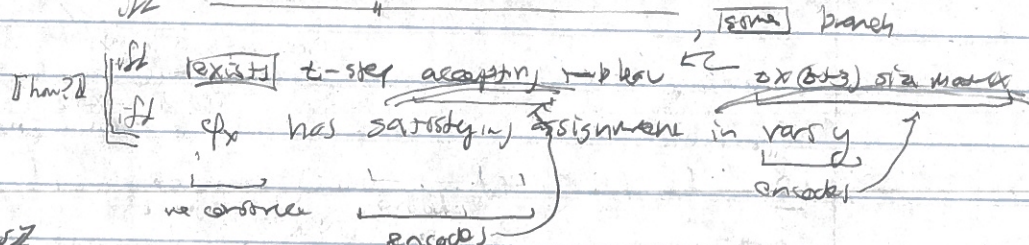 iff " , some branch
[[how?]] iff exists t-step accepting tableau ← t×(t+3) size matrix
iff φx has satisfying assignment in vars y
we construct encodes
encodes